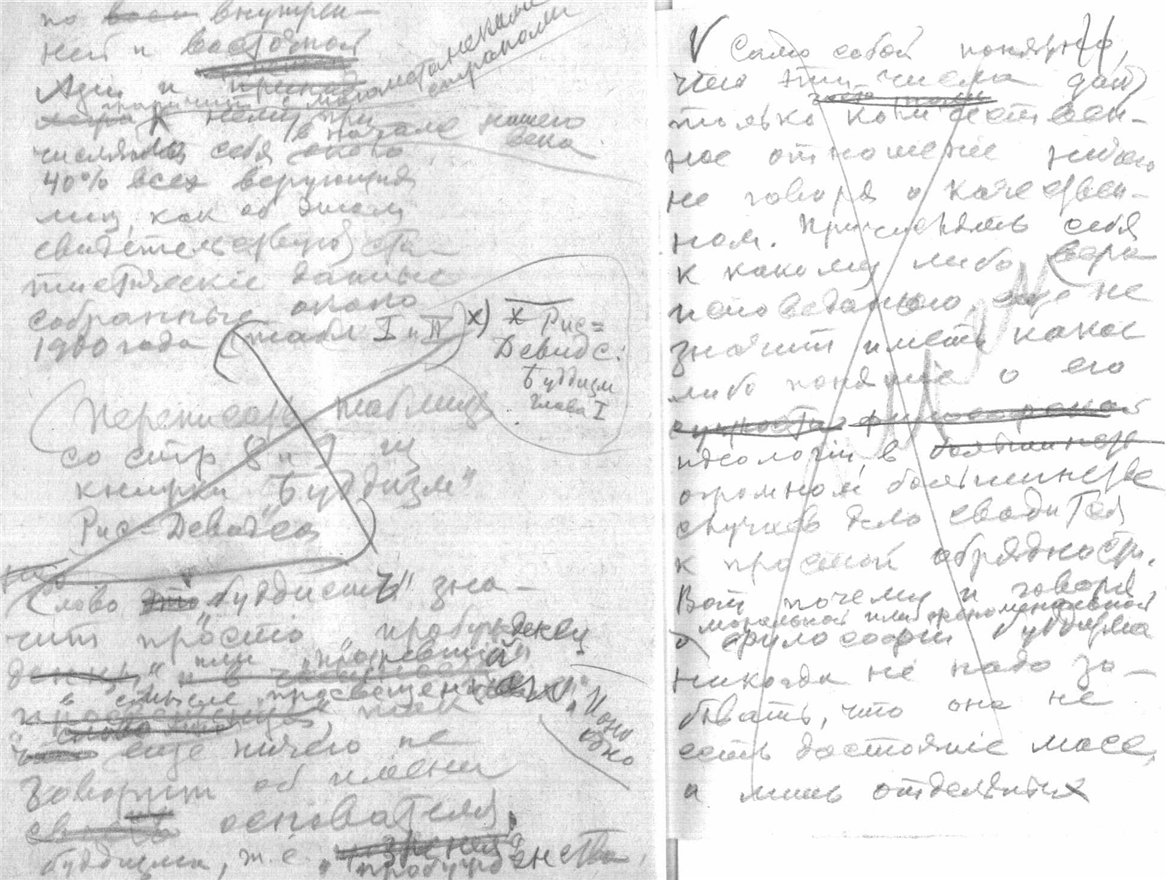 по всей внутрен-
ней и восточной
Азіи и
к нему при
в начале нашего
века
числяли себя около
40% всех верующих
лиц, как об этом
свидетельствуют ста-
тистическіе данные
собранные около
1900 года (табл I и II) x)
x Рис=
Девидс:
Буддизм
глава I
Переписать таблицы
со стр 8 и 9 из
книжки "Буддизм"
Рис-Девидса
Слово это "буддистъ" зна-
чит просто "пробужден
или "прозревший"
"
еще ничего не
говорит об имени
основателя
буддизма, т.е.
V Само собой понятно,
что эти числа дают
только количествен-
ное отношеніе ничего
не говоря о качествен-
ном. Причислять себя
к какому либо веро
исповеданію, еще не
значит иметь какое
либо понятіе о его
сущности философской
идеологіи, в большинстве
огромном большинстве
случаев дело сводится
к простой обрядности.
Вот почему и говоря
моральной или феноменальной
о философіи буддизма
никогда не надо за-
бывать, что она не
есть достояніе масс,
а лишь отдельных